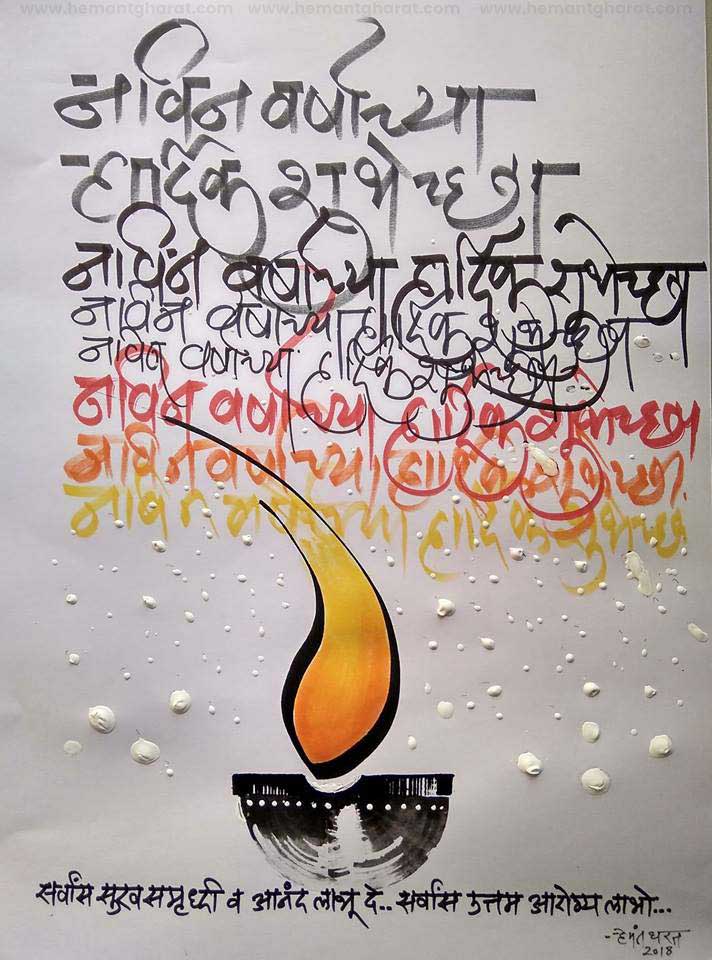 www.hemantgharat.com -www.hemantgharat.com -www.hemantgharat.com
नविन वर्षाच्या
हार्दिक शुभेच्छा
नविन वर्षाच्या हार्दिक शुभेच्छा
नविन वर्षाच्या हार्दिक शुभेच्छा
नविन वर्षाच्या हार्दिक शुभेच्छा
नविन वर्षाच्या हार्दिक शुभेच्छा
नविन वर्षाच्या हार्दिक शुभेच्छा
नविन वर्षाच्या हार्दिक शुभेच्छा
सर्वांस सुख समृध्दी व आनंद लाभू दे.. सर्वांस उत्तम आरोग्य लाभो...
-हेमंत घरत
2018